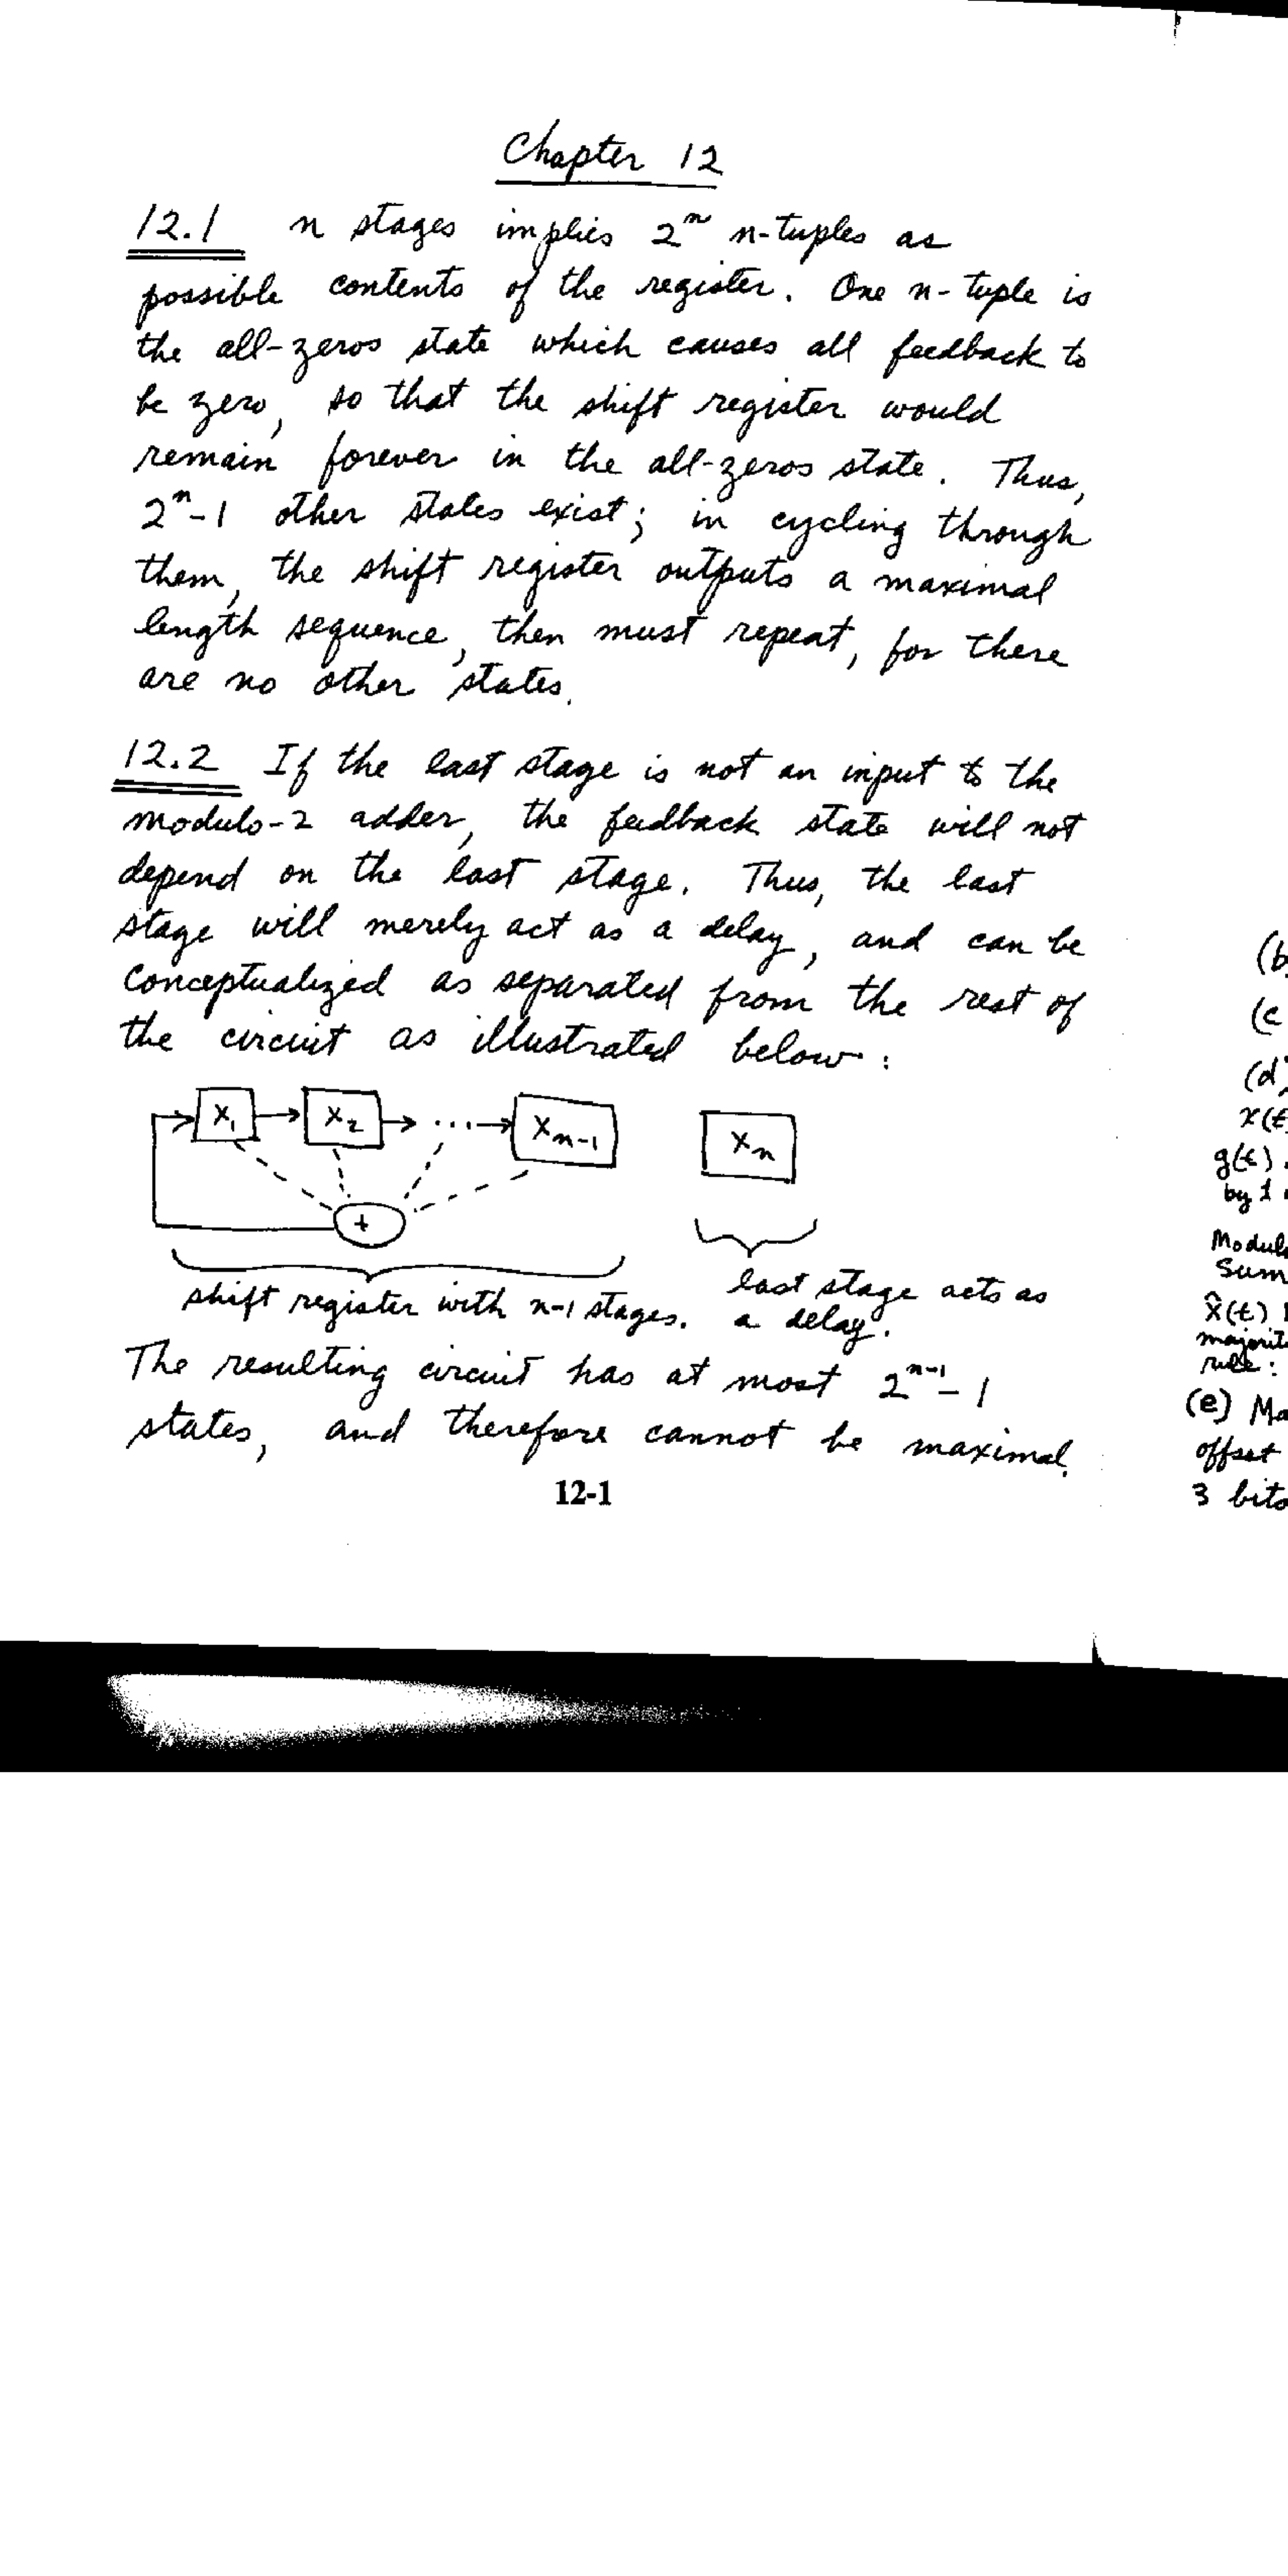 Chapter 12
12.1 n stages implies 2^n n-tuples as
possible contents of the register. One n-tuple is
the all-zeros state which causes all feedback to
be zero, so that the shift register would
remain forever in the all-zeros state. Thus,
2^n-1 other states exist; in cycling through
them, the shift register outputs a maximal
length sequence, then must repeat, for there
are no other states.
12.2 If the last stage is not an input to the
modulo-2 adder, the feedback state will not
depend on the last stage. Thus, the last
stage will merely act as a delay, and can be
conceptualized as separated from the rest of
the circuit as illustrated below:
X1 X2 ... Xn-1 Xn
+
shift register with n-1 stages.
last stage acts as
a delay.
The resulting circuit has at most 2^n-1 - 1
states, and therefore cannot be maximal.
12-1
(b
(c
(d)
x(t)
g(t)
by 1
Modul
Sum
x̂(t)
majorit
rule:
(e) Ma
offset
3 bits